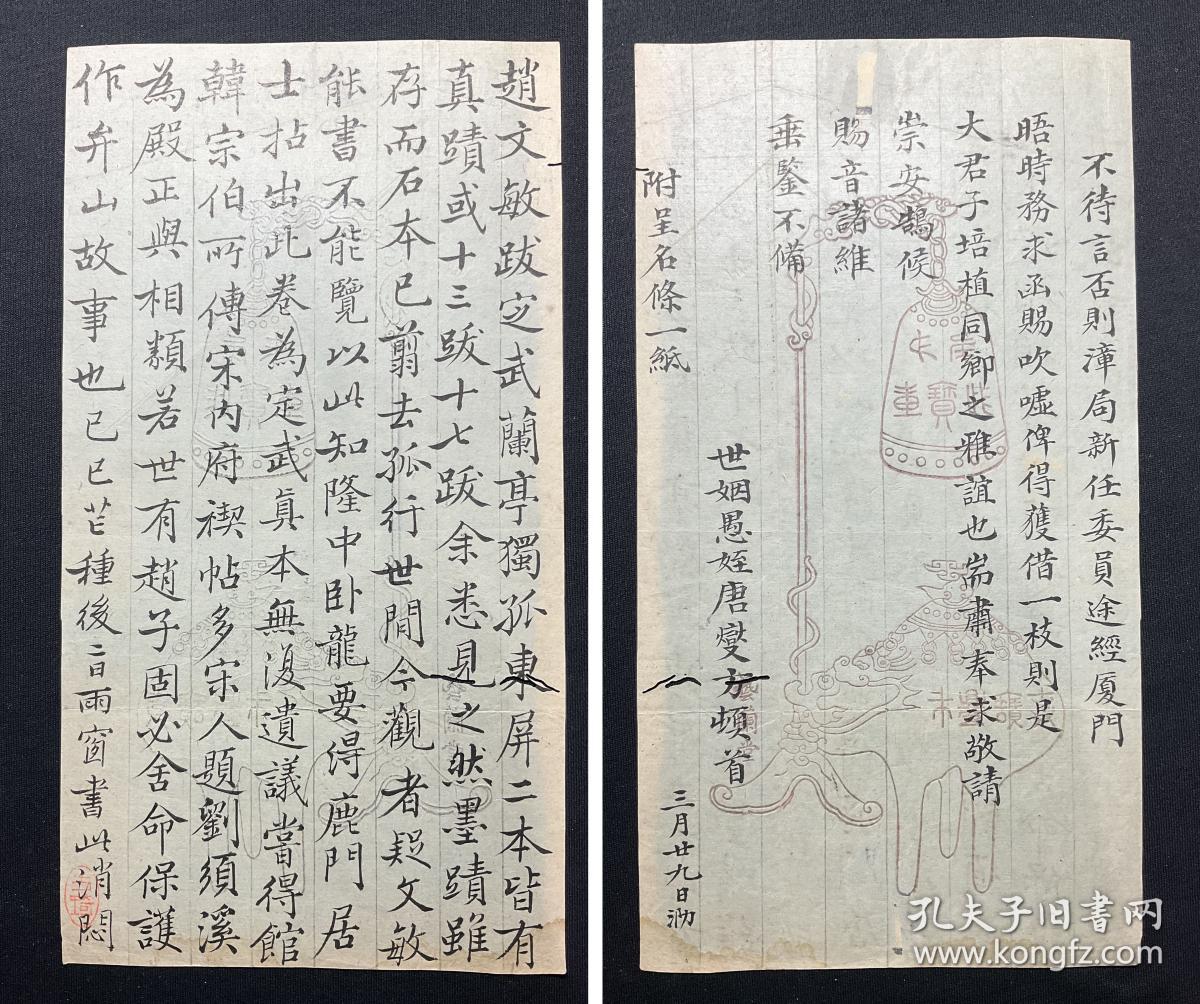 趙文敏跋定武蘭亭獨孤東屏二本皆有
真蹟或十三跋十七跋余悉見之然墨蹟雖
存而石本已翦去孤行世間今觀者疑文敏
能書不能覽以此知隆中卧龍要得鹿門居
士拈出此卷為定武真本無復遺議當得館
韓宗伯所傳宋內府禊帖多宋人題劉須溪
為殿正與相類若世有趙子固必舍命保護
作弁山故事也己巳芒種後二日雨窗書此消悶
不待言否則漳局新任委員途經厦門
晤時務求函賜吹噓俾得獲借一枝則是
大君子培植同鄉之雅誼也耑肅奉求敬請
崇安鵠候
賜音諸維
垂鑒不備
世姻愚姪唐燮方頓首
三月廿九日泐
附呈名條一紙
孔夫子旧书网
www.kongfz.com